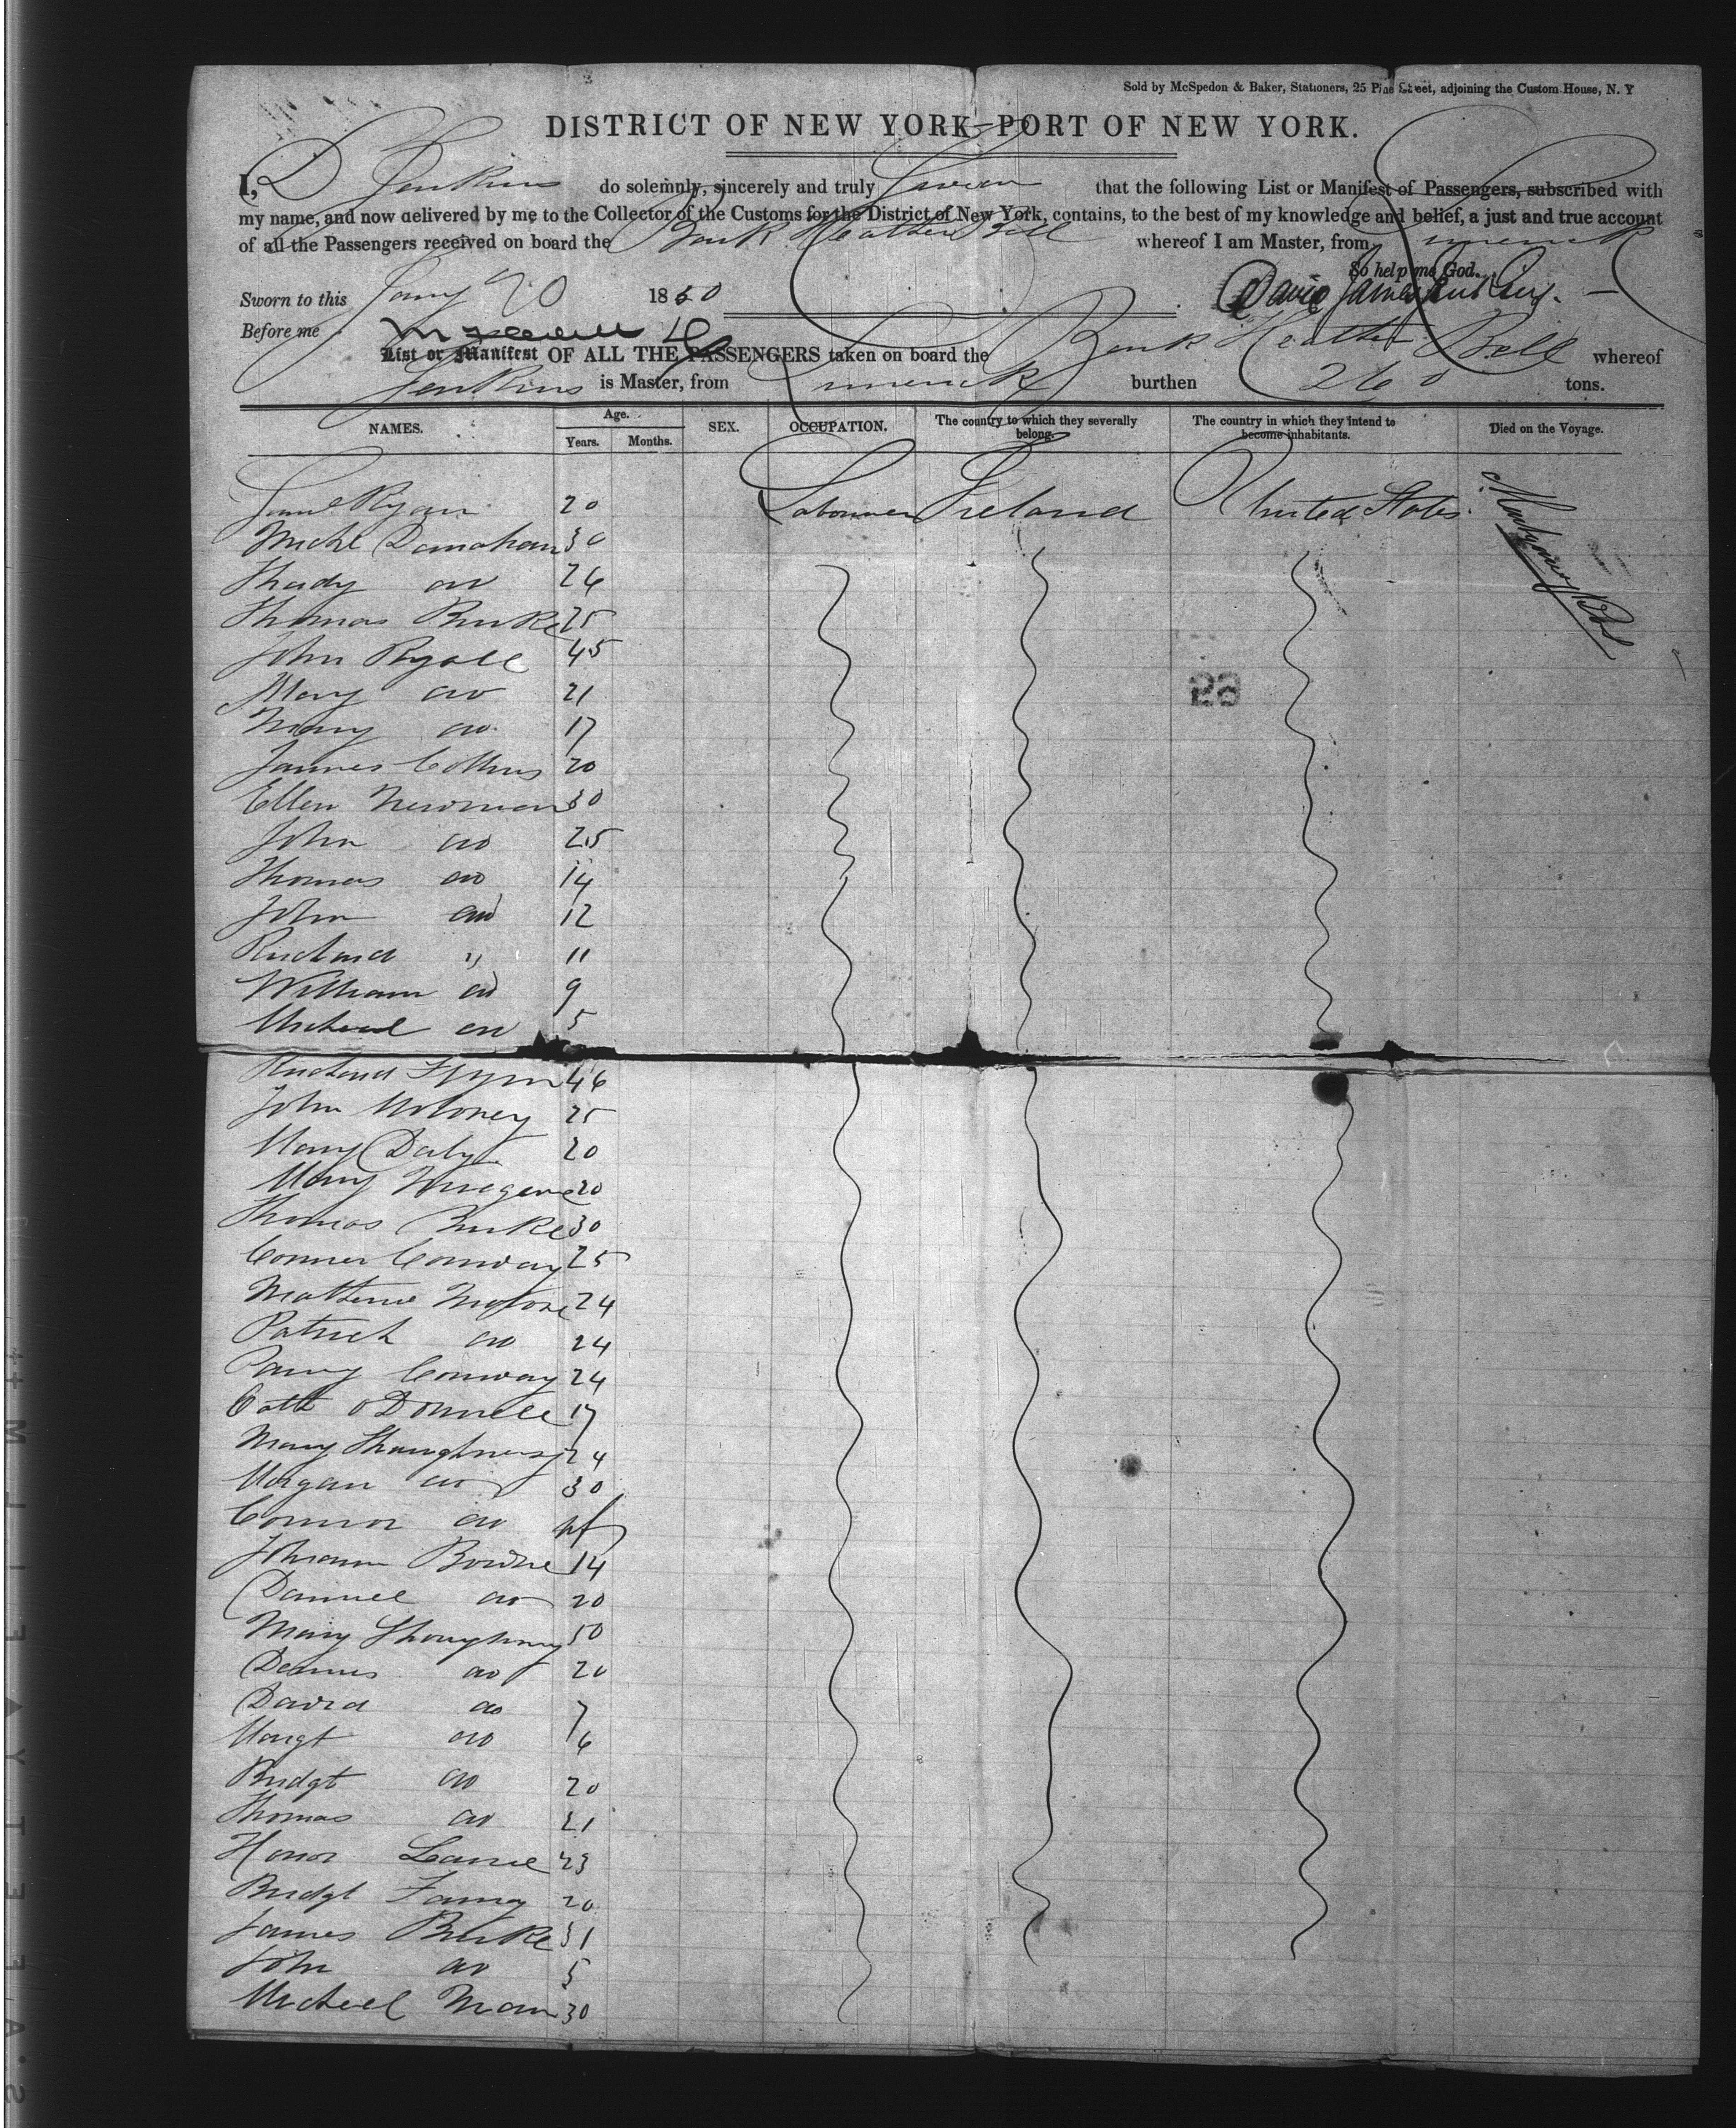 Sold by McSpedon & Baker, Stationers, 25 Pine Street, adjoining the Custom House, N. Y
DISTRICT OF NEW YORK—PORT OF NEW YORK.
I, D Jenkins do solemnly, sincerely and truly swear that the following List or Manifest of Passengers, subscribed with
my name, and now delivered by me to the Collector of the Customs for the District of New York, contains, to the best of my knowledge and belief, a just and true account
of all the Passengers received on board the Bark Heather Bell whereof I am Master, from Limerick
So help me God.
Sworn to this Jany 20 1850 David Jenkins
Before me
List or Manifest OF ALL THE PASSENGERS taken on board the Bark Heather Bell whereof
Jenkins is Master, from Limerick burthen 260 tons.
NAMES. Age. Years. Months. SEX. OCCUPATION. The country to which they severally belong. The country in which they intend to become inhabitants. Died on the Voyage.
Ryan 20 Labourer Ireland United States
Michl Donohan 30
Thady do 26
Thomas Burke 25
John Ryall 45
Mary do 21
Mary do 17
James Collins 20
Ellen Newman 30
John do 25
Thomas do 14
John do 12
Richard " 11
William do 9
Micheal do 5
23
Richard Flynn 46
John Moloney 25
Mary Daly 20
Mary 20
Thomas Burke 30
Conner Conway 25
Mathew 24
Patrick do 24
Conway 24
Cath O Donnell 17
Mary Shaughnessy 24
Morgan do 30
Connor do inf
Johann Bourke 14
Daniel do 20
Mary Shoughnessy 50
Dennis do 20
David do 7
Margt do 6
Bridgt do 20
Thomas do 21
Honor 23
Bridgt 20
James Burke 31
John do 5
Micheel 30